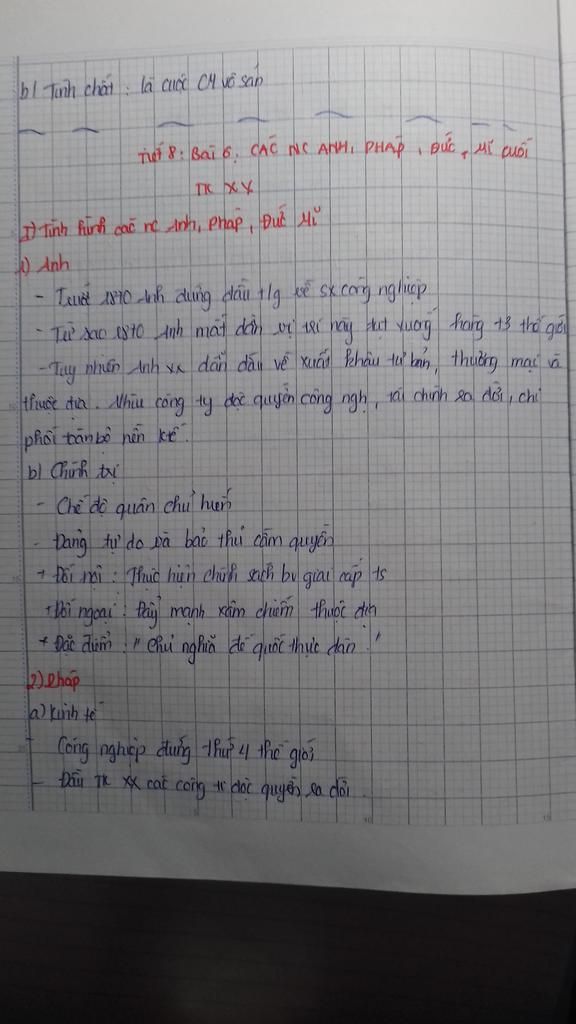 b/ Tính chất : là cuộc CM vô sản
Tiết 8: Bài 6: CÁC NC ANH, PHÁP, ĐỨC, MĨ CUỐI
TK XX
I) Tình hình các nc Anh, Pháp, Đức Mĩ
1) Anh
- Trước 1870 Anh đứng đầu t/g về sx công nghiệp
- Từ sao 1870 Anh mất dần vị trí này tụt xuống hàng t3 thế giới
- Tuy nhiên Anh vx dẫn đầu về xuất khẩu tư bản, thương mại và
thuộc địa. Nhiều công ty độc quyền công ngh, tài chính ra đời, chi
phối toàn bộ nền ktế.
b) Chính trị
- Chế độ quân chủ hiến
- Đảng tự do và bảo thủ cầm quyền
+ Đối nội : Thực hiện chính sách bv giai cấp ts
+ Đối ngoại : Đẩy mạnh xâm chiếm thuộc địa
+ Đặc điểm : " Chủ nghĩa đế quốc thực dân "
2) Pháp
a) Kinh tế
- Công nghiệp đứng thứ 4 thế giới
- Đầu TK XX các công ti độc quyền ra đời